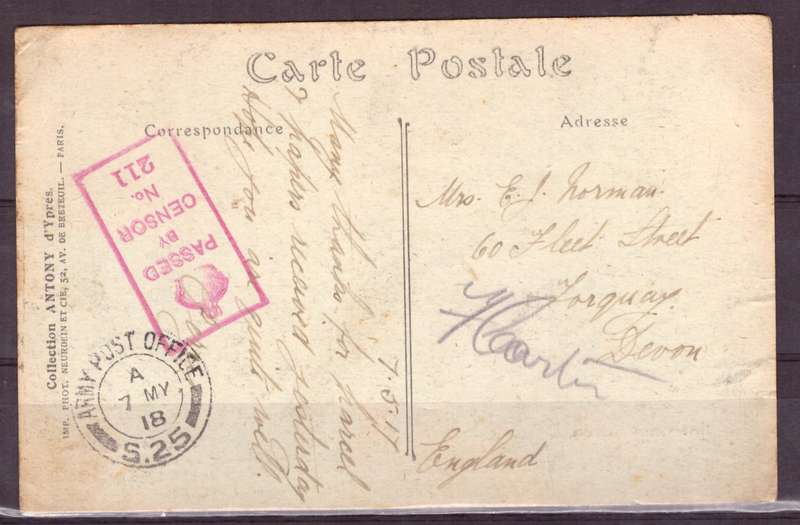 Carte Postale
Correspondance
Adresse
Collection ANTONY d'Ypres.
IMP. PHOT. NEURDEIN ET CIE, 52, AV. DE BRETEUIL. — PARIS.
PASSED
BY
CENSOR
No.
211
ARMY POST OFFICE
A
7 MY
18
S.25
7.5.17
Many thanks for parcel
& papers received yesterday
Hope you are quite well.
Mrs. E. J. Norman
60 Fleet Street
Torquay
Devon
England